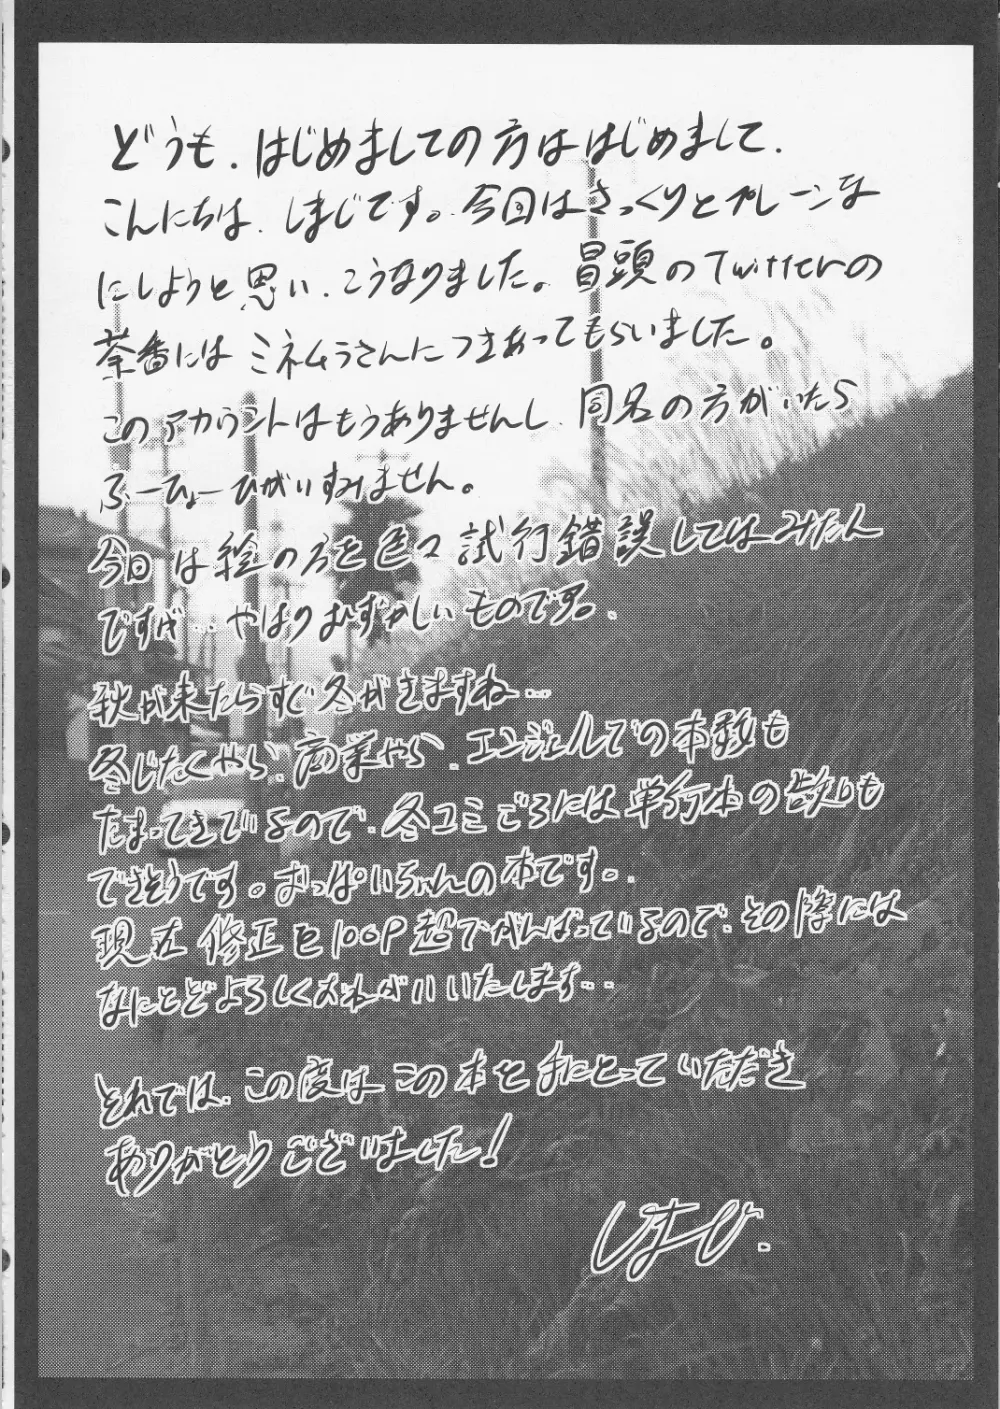 どうも．はじめましての方ははじめまして．
こんにちは．しまじです。今回はさっくりとプレーンな
にしようと思い．こうなりました。冒頭のTwitterの
茶番にはミネムラさんにつきあってもらいました。
このアカウントはもうありませんし．同名の方がいたら
ふーひょーひがいすみません。
今回は絵の方を色々試行錯誤してはみたん
ですが‥やはりむずかしいものです。．
秋が来たらすぐ冬がきますね‥
冬じたくやら．商業やら．エンジェルでの本数も
たまってきているので．冬コミごろには単行本の告知も
できそうです。おっぱいちゃんの本です。．
現在修正を100P超でがんばっているので．その際には
なにとどよろしくおねがいいたします‥
それでは．この度はこの本を手にとっていただき
ありがとうございました！